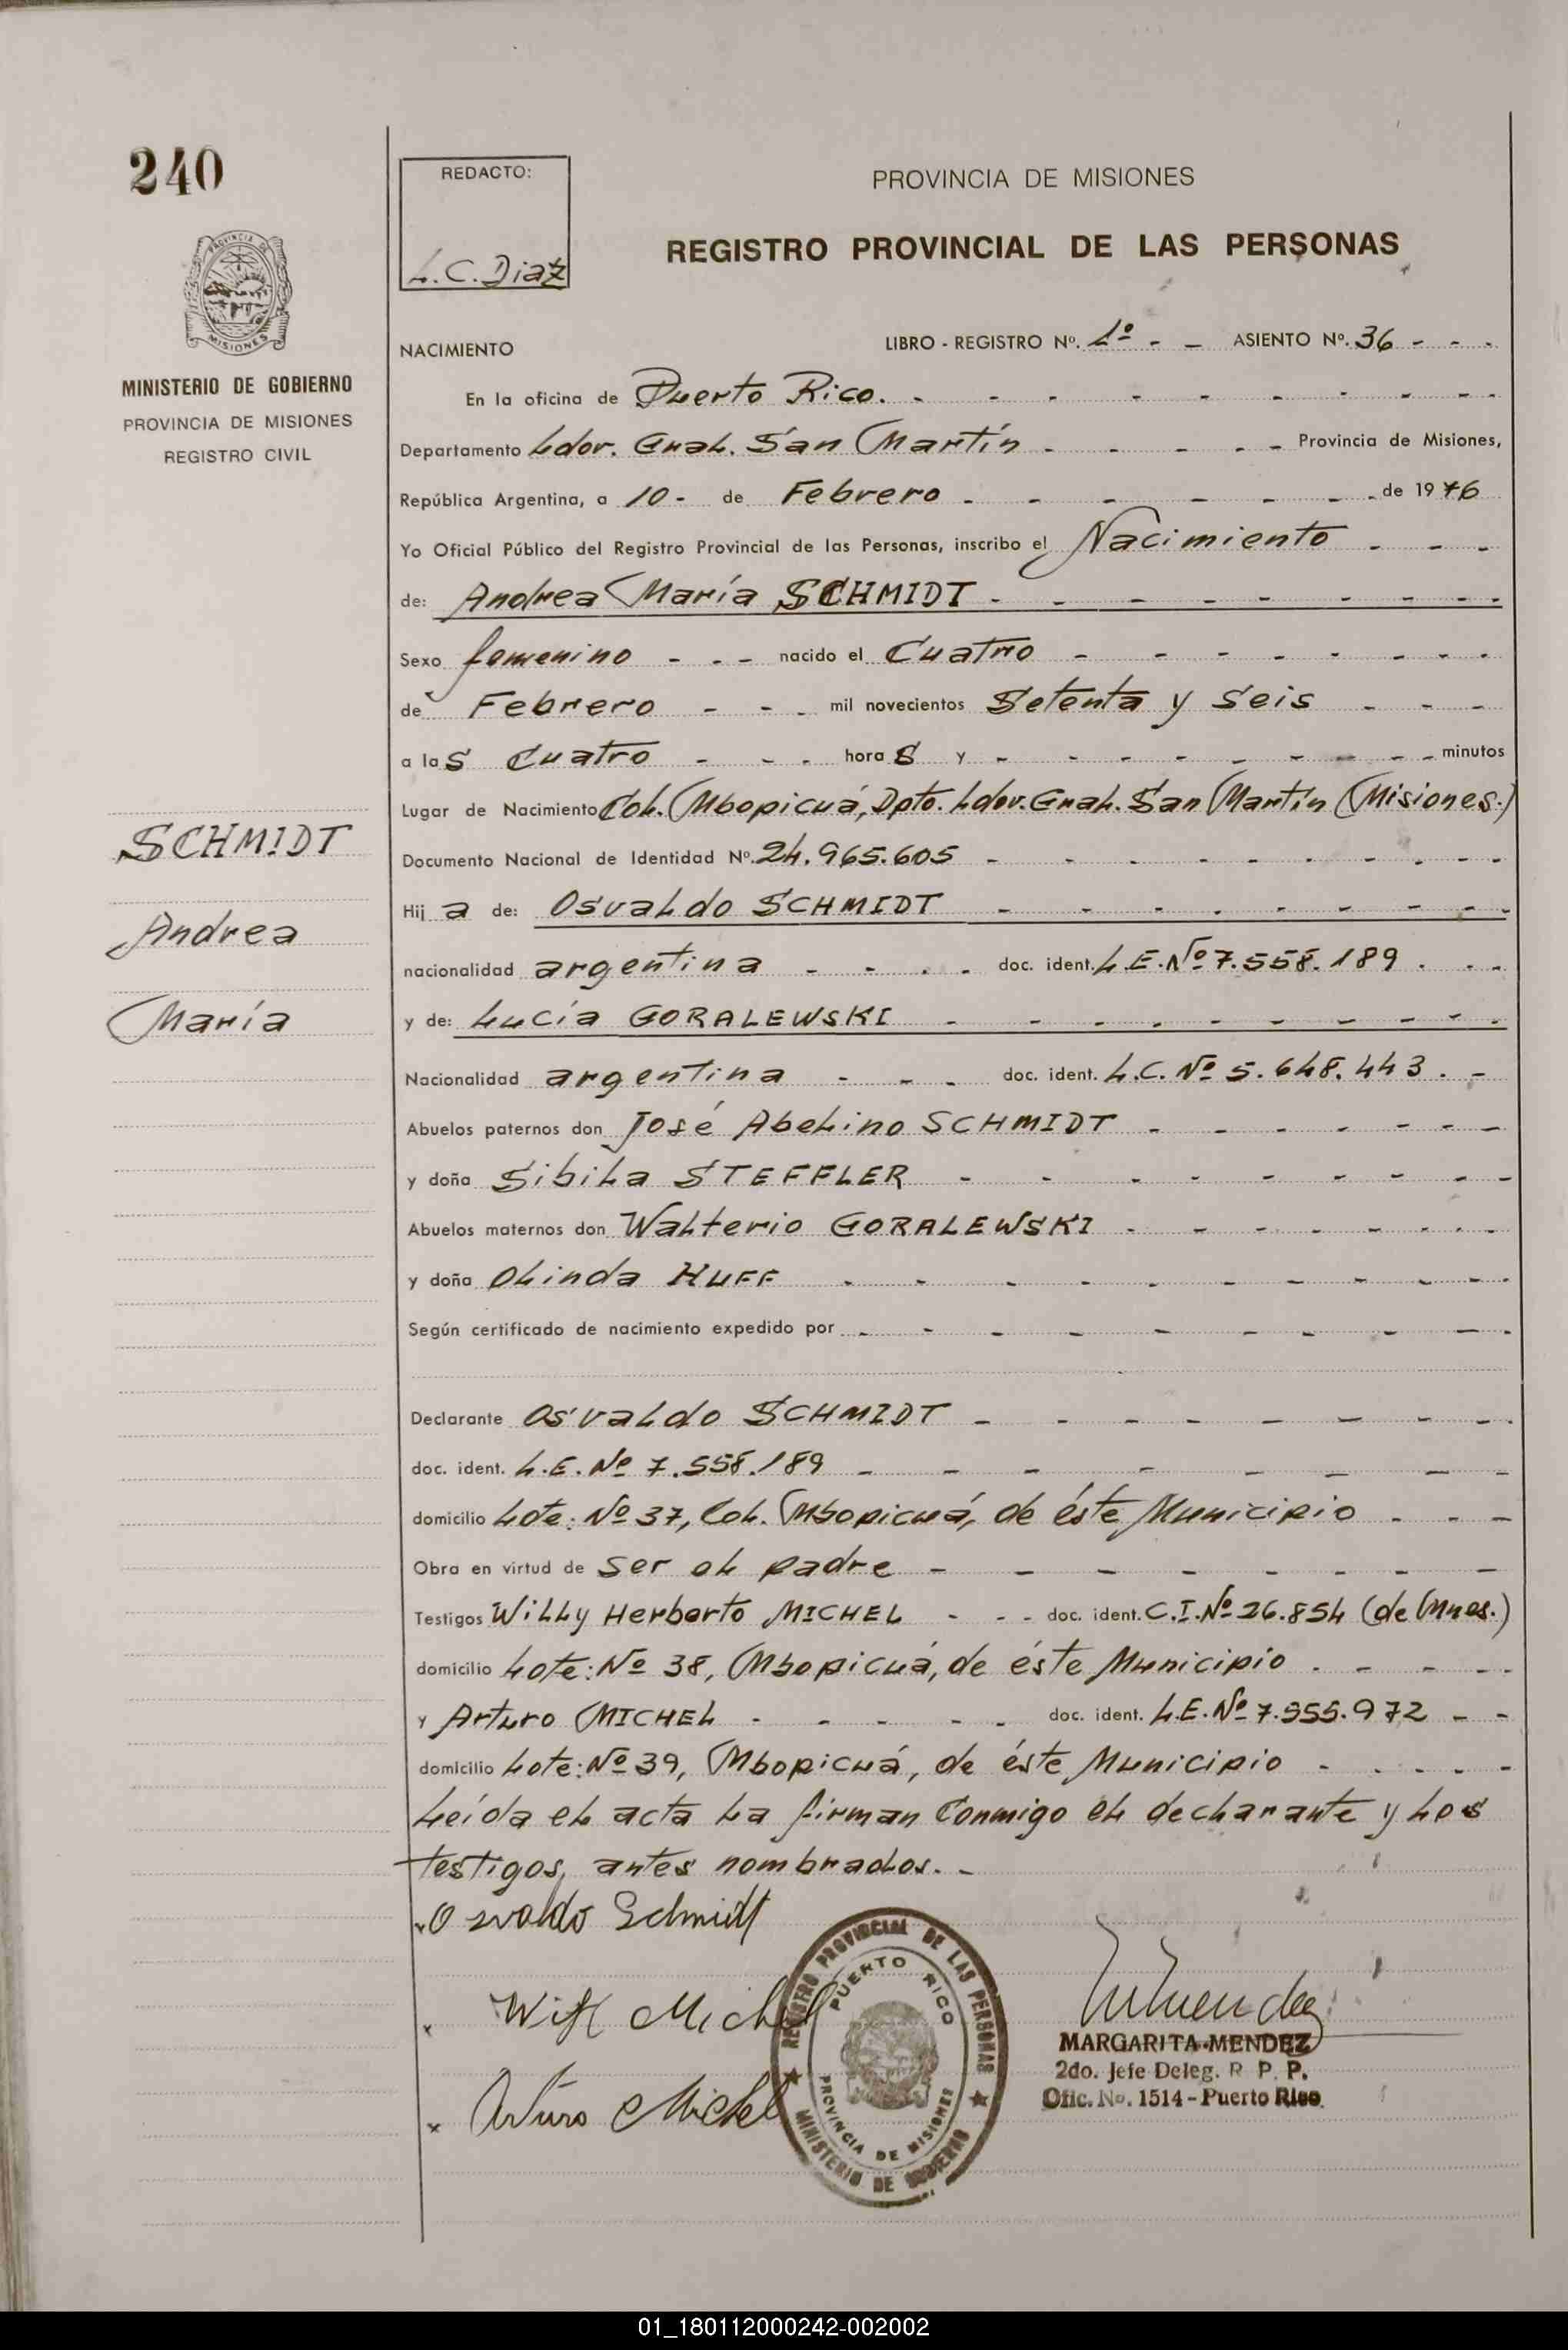 240
REDACTO:
L.C. Diaz
PROVINCIA DE MISIONES
REGISTRO PROVINCIAL DE LAS PERSONAS
PROVINCIA DE
MISIONES
MINISTERIO DE GOBIERNO
PROVINCIA DE MISIONES
REGISTRO CIVIL
NACIMIENTO LIBRO - REGISTRO Nº. 1º - - ASIENTO Nº. 36 - - -
En la oficina de Puerto Rico. - - - - - - - - -
Departamento Ldor. Gral. San Martín - - - - - Provincia de Misiones,
República Argentina, a 10- de Febrero - - - - - - - de 1976
Yo Oficial Público del Registro Provincial de las Personas, inscribo el Nacimiento - - -
de: Andrea María SCHMIDT - - - - - - - - -
Sexo femenino - - - nacido el Cuatro - - - - - - - -
de Febrero - - - mil novecientos Setenta y Seis - - -
a las Cuatro - - - horas y - - - - - - - - minutos
Lugar de Nacimiento Col. Mbopicuá, Dpto. Ldor. Gral. San Martín (Misiones.)
Documento Nacional de Identidad Nº. 24.965.605 - - - - - - - - -
Hija de: Osvaldo SCHMIDT - - - - - - - - -
nacionalidad argentina - - - - doc. ident. L.E. Nº 7.558.189 - - -
y de: Lucía GORALEWSKI - - - - - - - - - -
Nacionalidad argentina - - - doc. ident. L.C. Nº 5.648.443. -
Abuelos paternos don José Abelino SCHMIDT - - - - - - - -
y doña Sibila STEFFLER - - - - - - - - -
Abuelos maternos don Walterio GORALEWSKI - - - - - - - -
y doña Olinda HUFF - - - - - - - - - -
Según certificado de nacimiento expedido por - - - - - - - - -
Declarante Osvaldo SCHMIDT - - - - - - - - -
doc. ident. L.E. Nº 7.558.189 - - - - - - - -
domicilio Lote: Nº 37, Col. Mbopicuá, de éste Municipio - - -
Obra en virtud de ser el padre - - - - - - - -
Testigos Willy Herberto MICHEL - - - doc. ident. C.I. Nº 26.854 (de Mnes.)
domicilio Lote: Nº 38, Mbopicuá, de éste Municipio - - - - -
y Arturo MICHEL - - - - - doc. ident. L.E. Nº 7.555.972 - -
domicilio Lote: Nº 39, Mbopicuá, de éste Municipio - - - - -
Leída el acta la firman Conmigo el declarante y los
testigos, antes nombrados. -
SCHMIDT
Andrea
María
Osvaldo Schmidt
Michel
x Arturo Michel
REGISTRO PROVINCIAL DE LAS PERSONAS
MINISTERIO DE GOBIERNO
PUERTO RICO
PROVINCIA DE MISIONES
MARGARITA MENDEZ
2do. Jefe Deleg. R. P. P.
Ofic. No. 1514 - Puerto Rico.
01_180112000242-002002